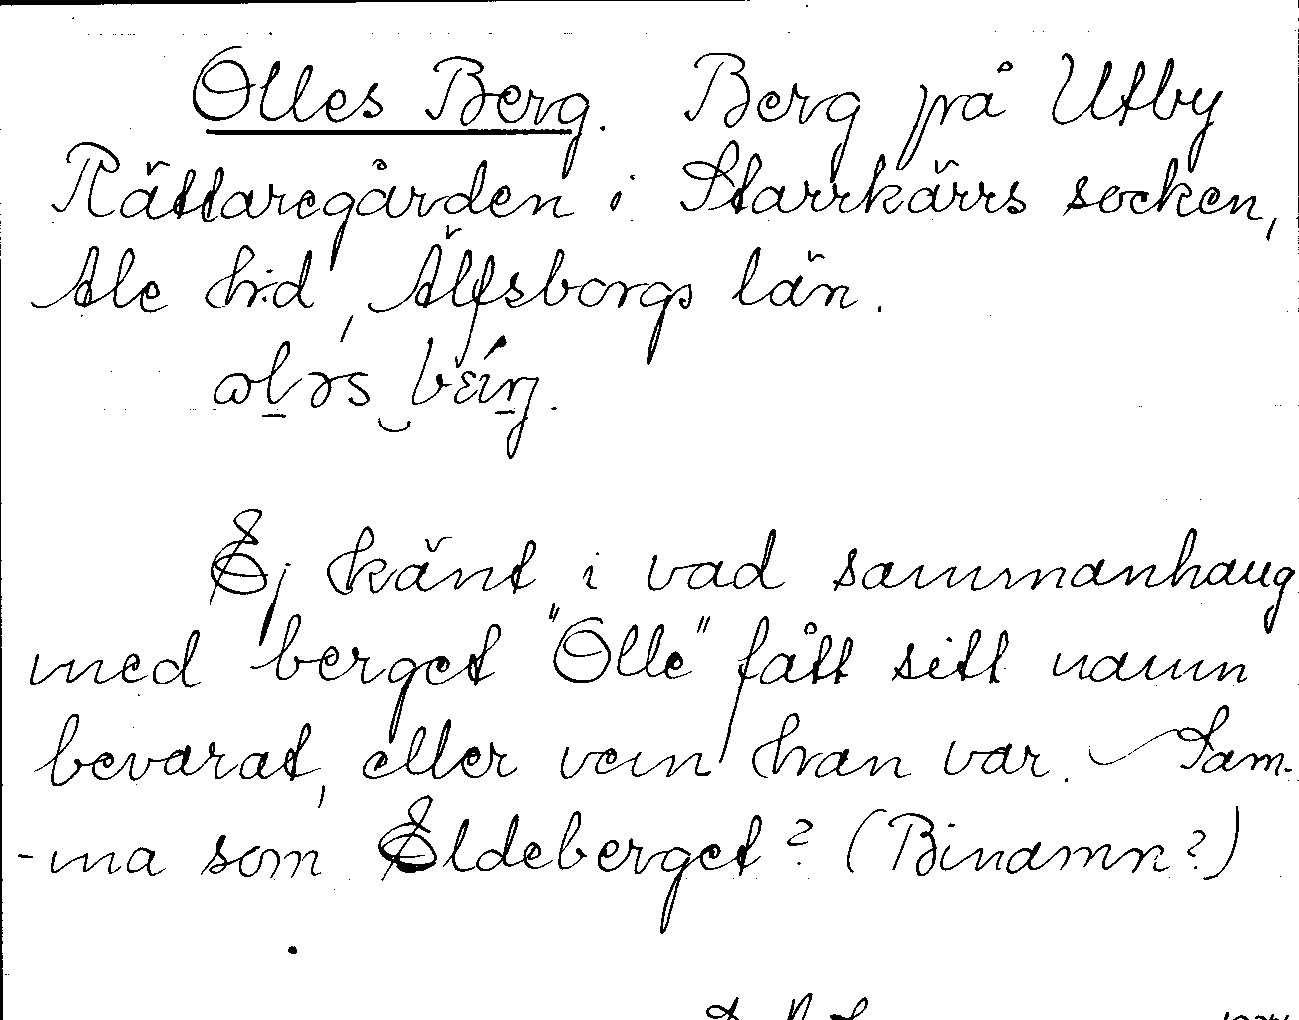 Olles Berg. Berg på Utby
Rättaregården i Starrkärrs socken,
Ale hd, Älfsborgs län.
Ej känt i vad sammanhang
med berget "Olle" fått sitt namn
bevarat, eller vem han var. Sam-
-ma som Eldeberget? (Binamn?)